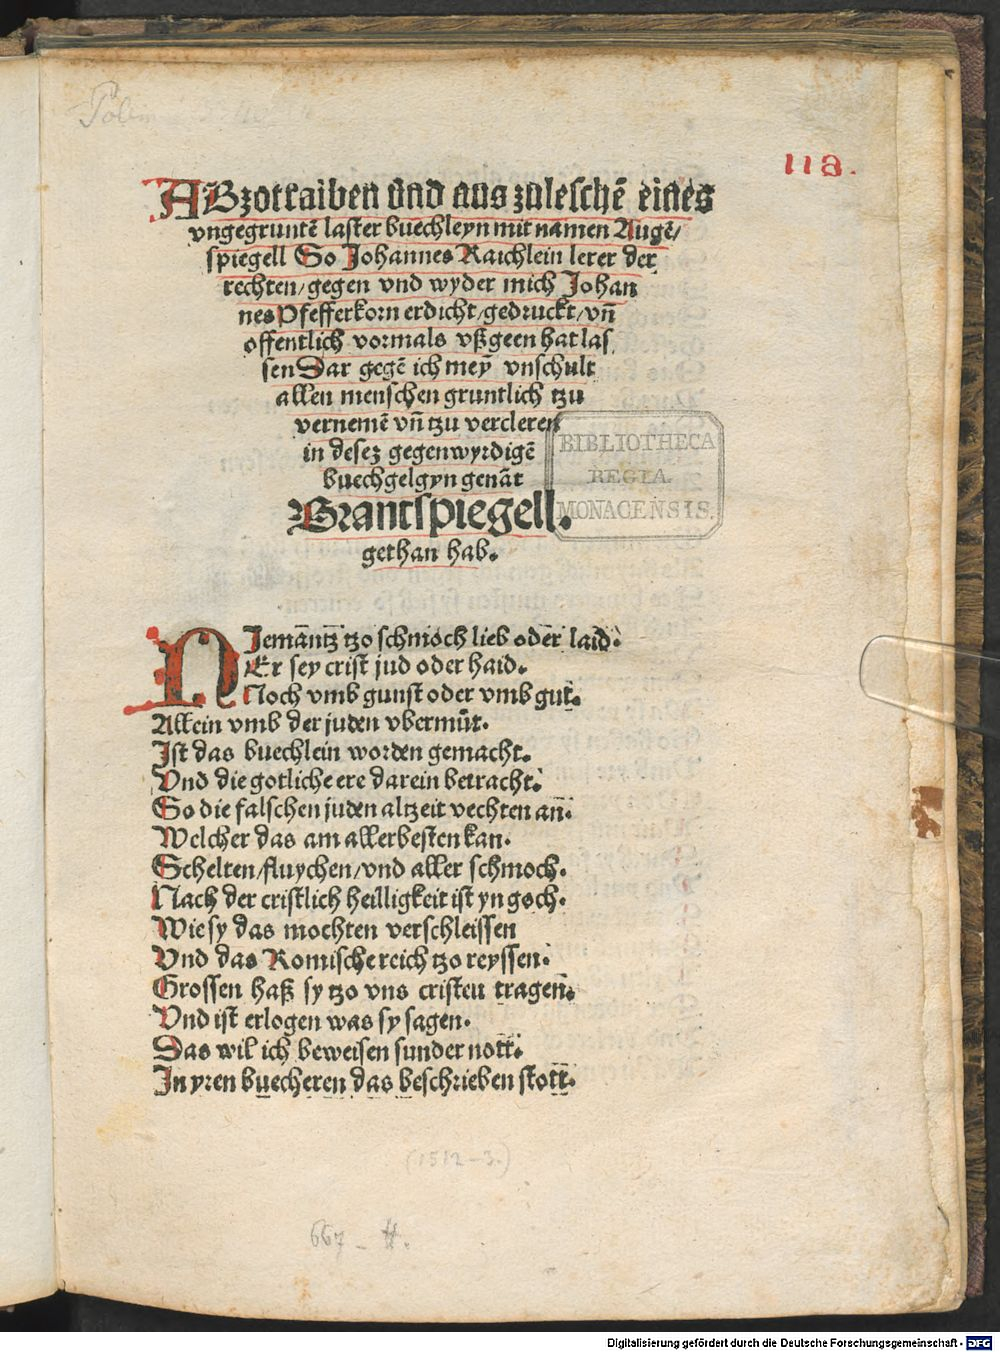 118.
ABzotraiben ūnd aus zuleschē eines
vngegruntē laster buechleyn mit namen Augē/
spiegell So Johannes Raichlein lerer der
rechten/gegen vnd wyder mich Johan
nes Pfefferkorn erdicht/gedruckt/vñ
offentlich vormals vßgeen hat las
sen Dar gegē ich meȳ vnschult
allen menschen gruntlich tzu
vernemē vñ tzu vercleren
in desez gegenwyrdigē
buechgelgyn genāt
Brantspiegell.
gethan hab.
BIBLIOTHECA
REGIA
MONACENSIS.
NJemāntz tzo schmoch lieb oder laid.
Er sey crist jud oder haid.
Noch vmb gunst oder vmb gut.
Allein vmb der juden vbermūt.
Jst das buechlein worden gemacht.
Vnd die gotliche ere darein betracht.
So die falschen juden altzeit vechten an̄.
Welcher das am allerbesten kan.
Schelten/fluychen/vnd aller schmoch.
Nach der cristlich heilligkeit ist yn goch.
Wie sy das mochten verschleissen
Vnd das Romische reich tzo reyssen.
Grossen haß sy tzo vns cristeu tragen̄.
Vnd ist erlogen was sy sagen.
Das wil ich beweisen sunder nott.
Jn yren buecheren das beschrieben stott.
(1512-3.)
667 - #.
Digitalisierung gefördert durch die Deutsche Forschungsgemeinschaft - DFG